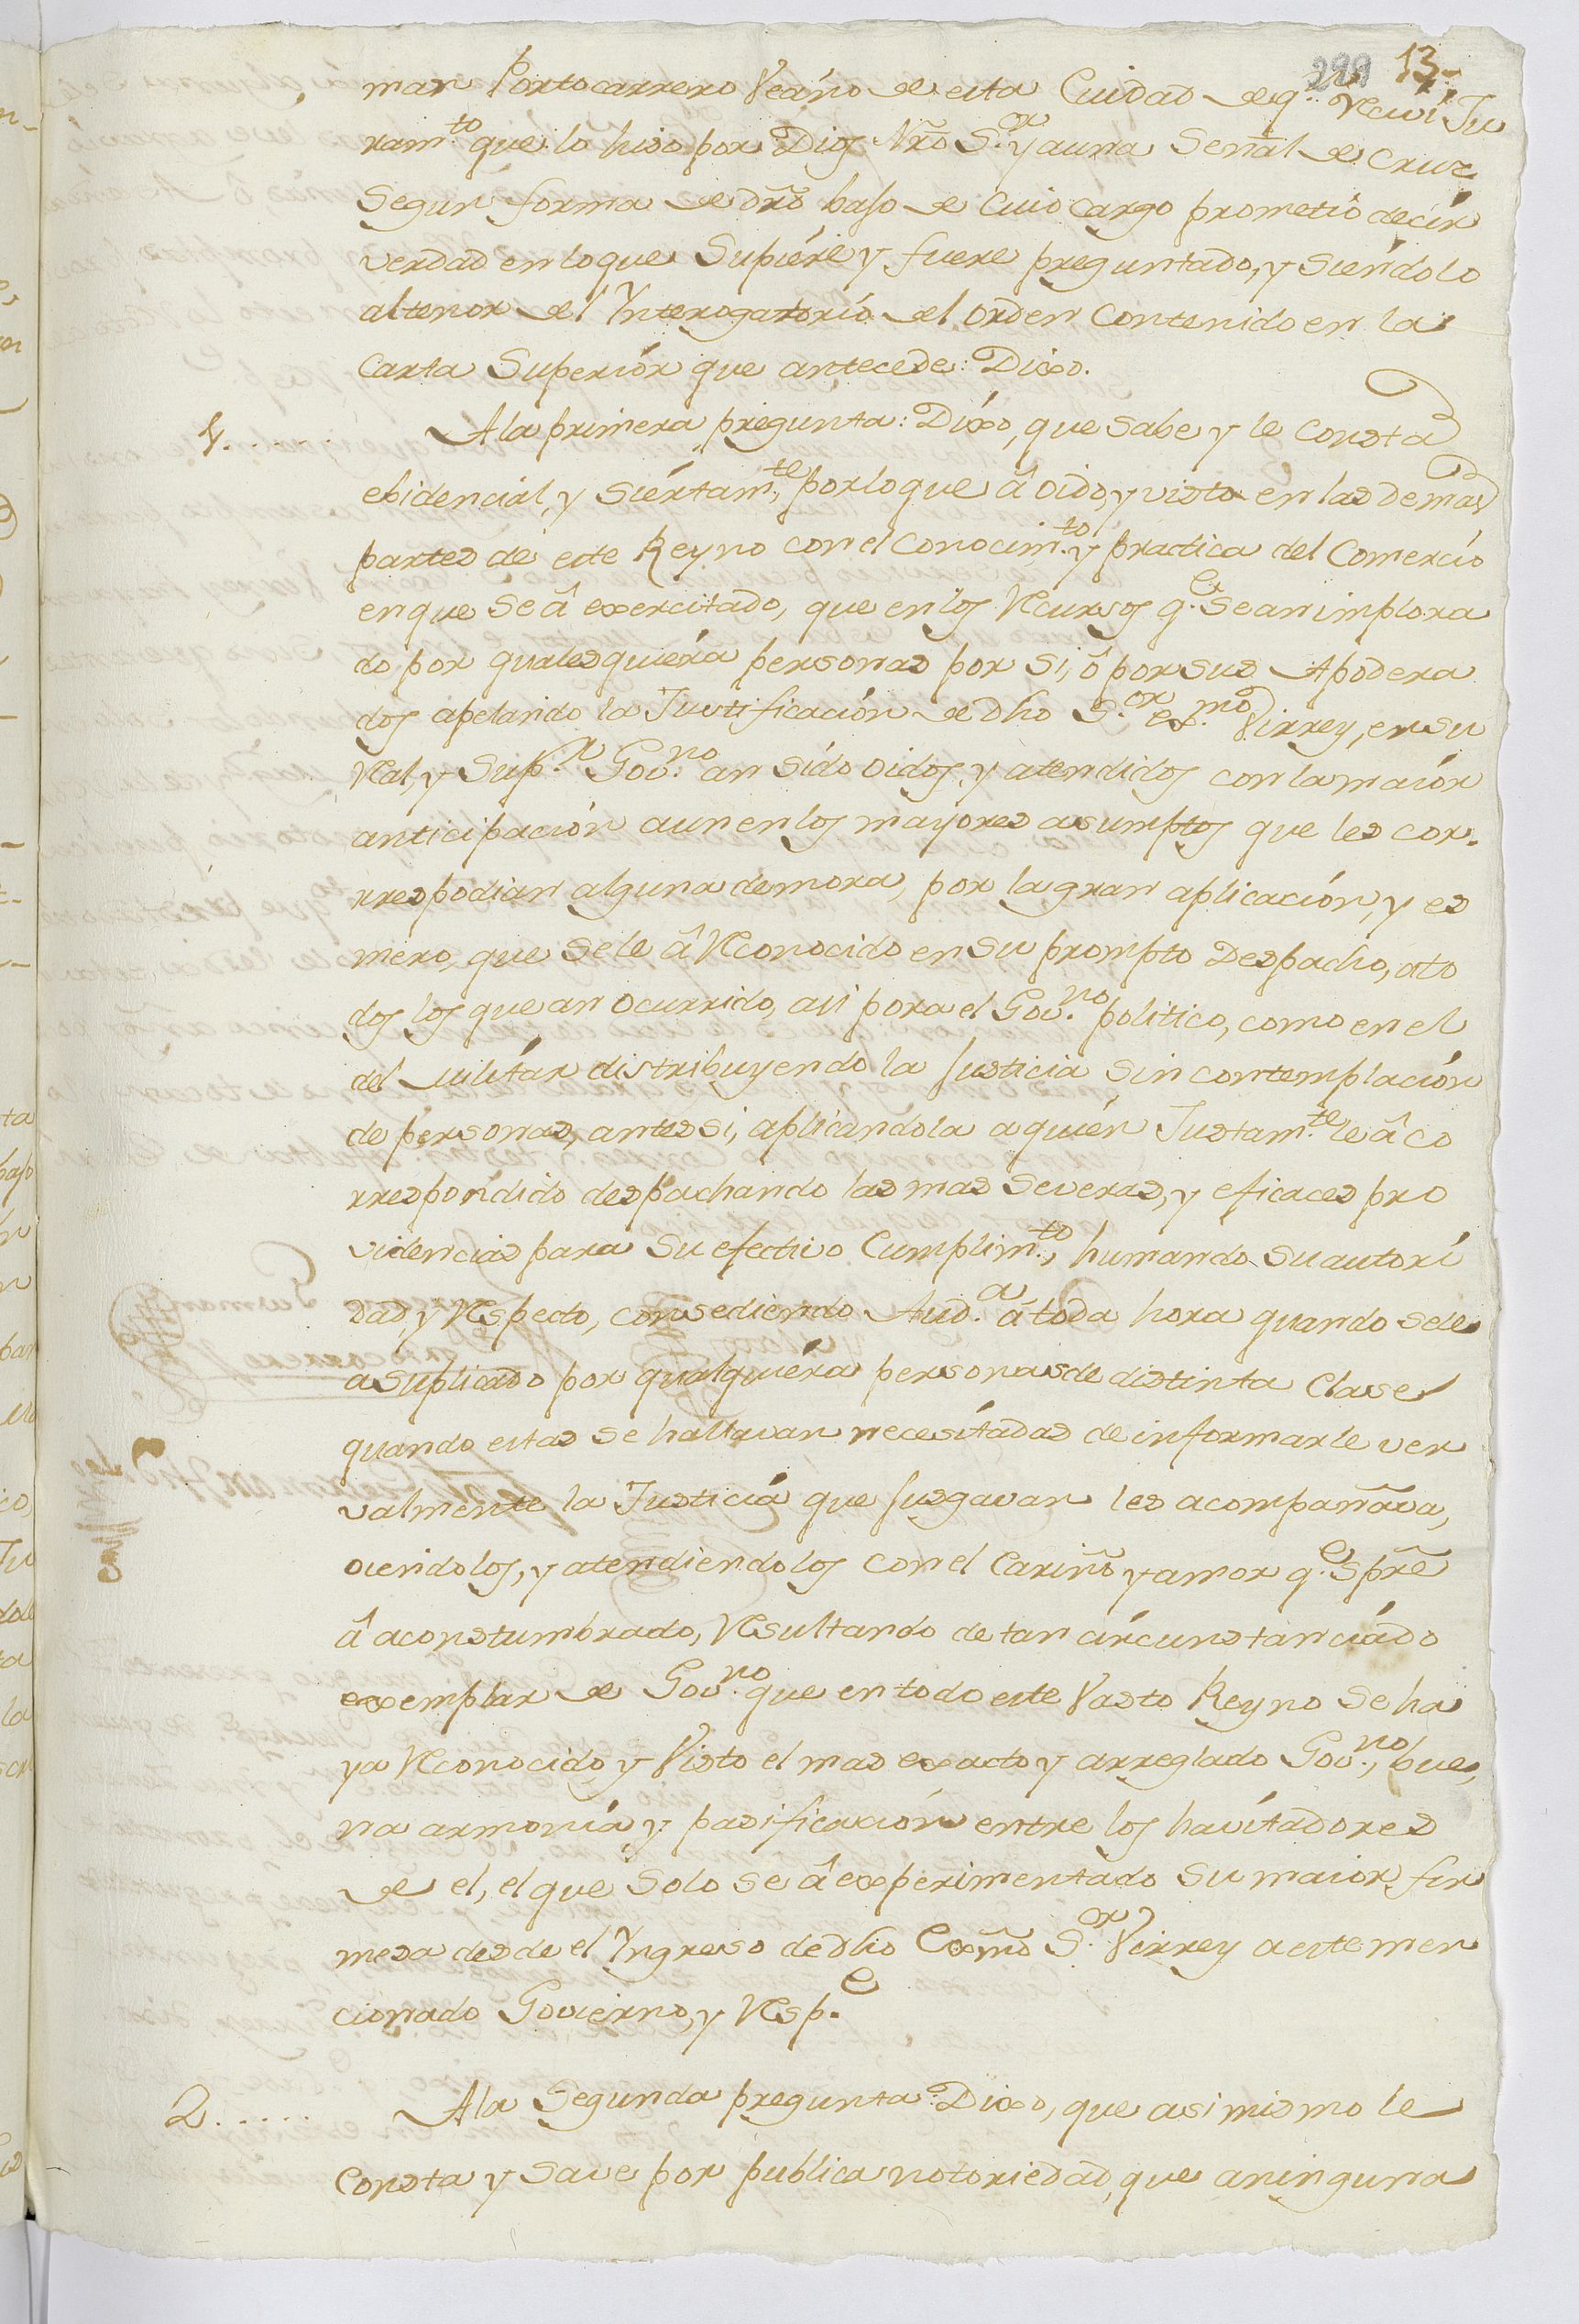 299 13
man Portocarrero Vecino de esta Ciudad de q.n Recivi Ju
ram.to que lo hiso por Dios Nro S.or y a una Señal de Cruz
Segun forma de dro baso de Cuio Cargo prometió decir
verdad en lo que Supiére y fuere preguntado, y Siéndolo
al tenor del Ynterogatorio del orden Contenido en la
Carta Superiór que antecede: Dixo.
1...... A la primera pregunta: Dixo, que Sabe y le Consta
ebidencial, y Siértam.te, por lo que â oido, y visto en las demas
partes de este Reyno con el Conocim.to y practica del Comercio
en que Se â exercitado, que en los Recursos q.e Se an implora
do por qualesquiéra personas por Si, ô por sus Apodera
dos apelando la Justificación de Dho S.or ex.mo Virrey, en su
Real, y Sup.r Gov.no an Sído oidos, y atendidos con la maiór
anticipación aun en los mayores asumptos que les cor-
rrespodian alguna demora, por la gran aplicación, y es
mero, que Se le â Reconocido en Su prompto Despacho, a to
dos los que an ocurrido, asi para el Gov.no politico, como en el
del Militár distribuyendo la Justicia Sin contemplación
de personas, antes si, aplicandola a quién Justam.te le â co
rrespondido despachando las mas Severas, y eficaces pro
videncias para Su efectivo Cumplim.to, humando Su autori
dad, y Respecto, consediendo Aud.a â toda hora quando Se le
a Suplicado por qualquiéra personas de distinta Clase
quando estas Se hallavan necesitadas de informarle ver
valmente la Justicia que Jusgavan les acompañava,
oiendolos, y atendiendolos con el Cariño y amor q.e Spre
â aconstumbrado, Resultando de tan circunstanciádo
exemplar de Gov.no que en todo este Vasto Reyno Se ha
ya Reconocido y Visto el mas exacto y arreglado Gov.no, bue,
na armonía y pasificación entre los havitadores
de el, el que Solo Se â experimentado Su maior fir
mesa desde el Yngreso de dho Exmo S.or Virrey a este men
cionado Govierno, y Resp.e
2...... A la Segunda pregunta: Dixo, que asimismo le
Consta y Save por publica notoriedad, que a ninguna